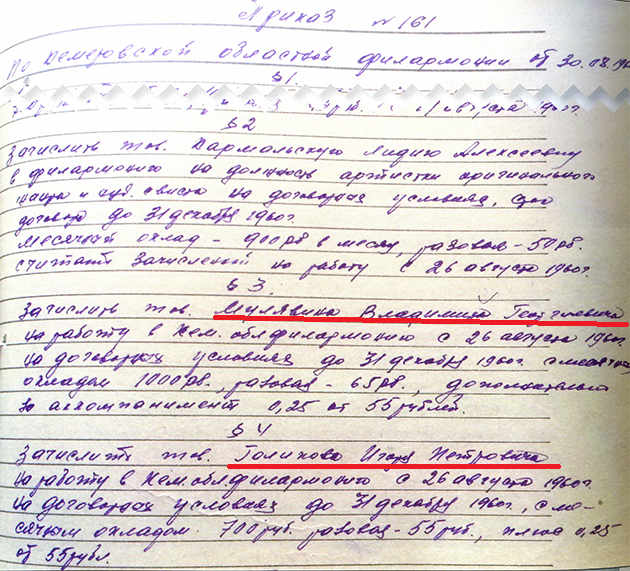 Приказ №161
По Кемеровской областной филармонии от 30.08.196
§1
августа 1960г.
§2
Зачислить тов. Кармальскую Лидию Алексеевну
в филармонию на должность артистки оригинального
жанра и худ. свиста на договорных условиях, срок
договора до 31 декабря 1960г.
Месячный оклад - 900 рб в месяц, разовая - 50 рб.
считать зачисленной на работу с 26 августа 1960г.
§3.
Зачислить тов. Мулявина Владимира Георгиевича
на работу в Кем. облфилармонию с 26 августа 1960г.
на договорных условиях до 31 декабря 1960г. с месячным
окладом 1000 рб., разовая - 65 рб., дополнительно
за аккомпанимент 0,25 от 55 рублей.
§4
Зачислить тов. Голикова Игоря Петровича
на работу в Кемоблфилармонию с 26 августа 1960г.
на договорных условиях до 31 декабря 1960г., с ме-
сячным окладом 700 руб. разовая - 55 руб., плюс 0,25
от 55 рубл.